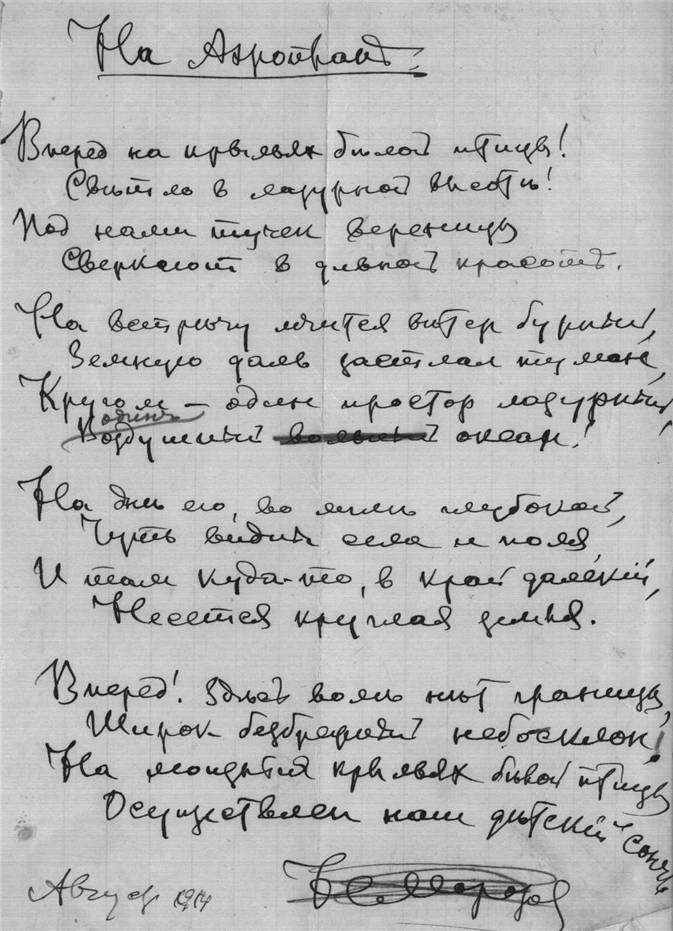 На Аэропланѣ.
Вперед на крыльях бѣлой птицы!
Свѣтло в лазурной высотѣ!
Под нами тучек вереницы
Сверкают в дивной красотѣ.
На встрѣчу мчится вѣтер бурный,
Земную даль застлал туман,
Кругом – один простор лазурный,
один
Воздушный вольный океан!
На днѣ его, во мглѣ глубокой,
Чуть видны села и поля,
И там куда-то, в край далекій,
Несется круглая земля.
Вперед! Здѣсь волѣ нѣт границы,
Широк безбрежный небосклон!
На крыльях бѣлой птицы
Осуществлен наш дѣтскій сон
Август 1914
Морозов